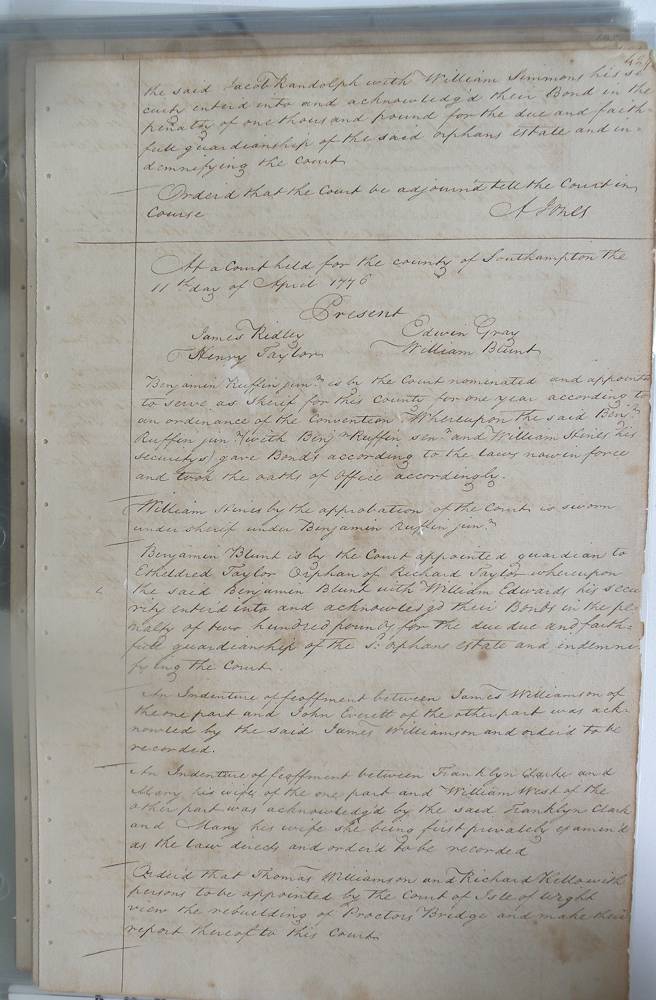 429
the said Jacob Randolph with William Simmons his se
curity enterd into and acknowledg'd their Bond in the
penalty of one thousand pound for the due and faith-
full guardianship of the said orphans estate and in-
demnifying the Court
Orderd that the Court be adjournd till the Court in
Course
A Jones
At a Court held for the county of Southampton the
11th day of April 1776
Present
James Ridley Edwin Gray
Henry Taylor William Blunt
Benjamin Ruffin junr. is by the Court nominated and appointed
to serve as Sherif for this County for one year according to
an ordinance of the Convention. Whereupon the said Benjn.
Ruffin junr. (with Benjn. Ruffin senr. and William Hines his
securitys) gave Bonds according to the laws now in force
and took the oaths of Office accordingly.
William Hines by the approbation of the Court is sworn
under sherif under Benjamin Ruffin junr.
Benjamin Blunt is by the Court appointed guardian to
Etheldred Taylor Orphan of Richard Taylor whereupon
the said Benjamin Blunt with William Edwards his secu
rity enterd into and acknowledgd their Bonds in the pe-
nalty of two hundred pounds for the due due and faith-
full guardianship of the Sd. orphans estate and indemne
fying the Court.
An Indenture of feoffment between James Williamson of
the one part and John Everett of the other part was ack-
nowled by the said James Williamson and order'd to be
recorded.
An Indenture of feoffment between Franklyn Clarke and
Mary his wife of the one part and William West of the
other part was acknowledg'd by the said Franklyn Clark
and Mary his wife she being first privately examin'd
as the law directs and order'd to be recorded
Order'd that Thomas Williamson and Richard Kello with
persons to be appointed by the Court of Isle of Wight
view the rebuilding of Proctors Bridge and make their
report thereof to this Court